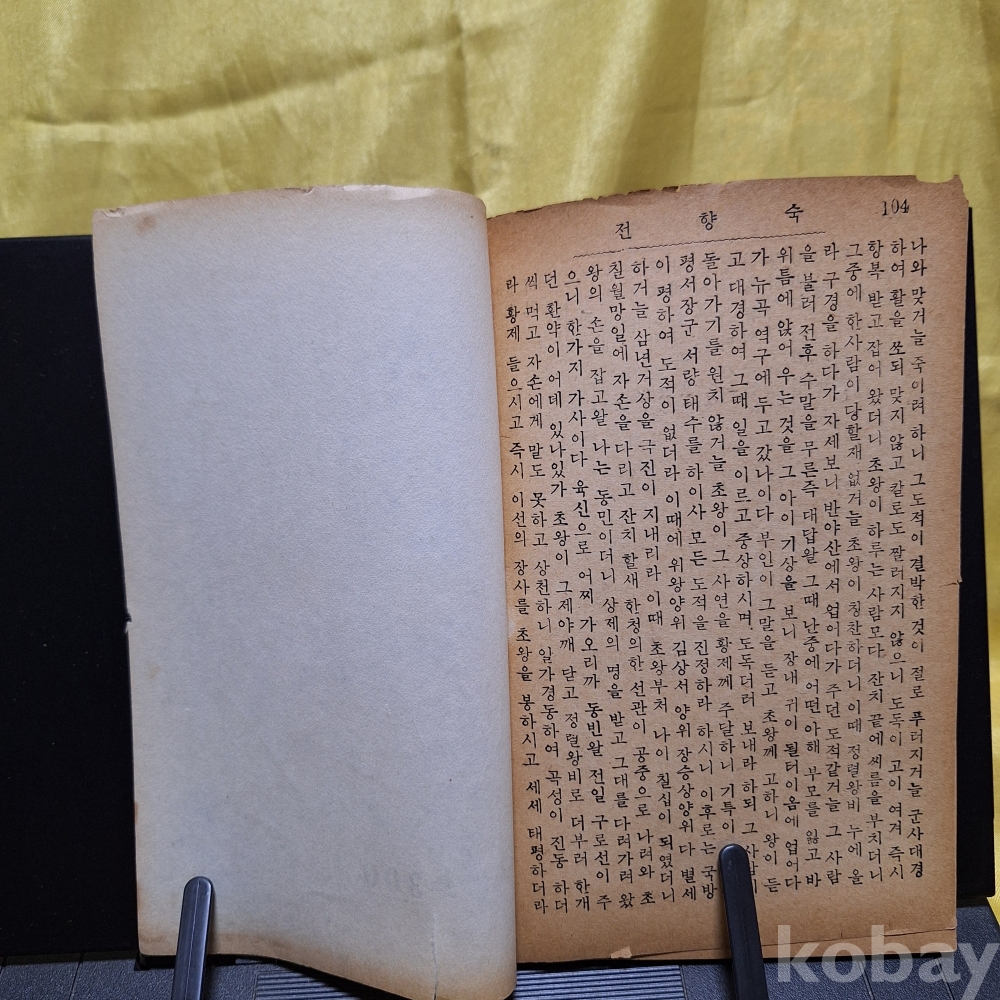 104
숙향전
나와 맞거늘 죽이려 하니 그도적이 결박한 것이 절로 푸러지거늘 군사대경
하여 활을 쏘되 맞지 않고 칼로도 짤러지지 않으니 도독이 고이 여겨 즉시
항복 받고 잡어 왔더니 초왕이 하루는 사람모다 잔치 끝에 씨름을 부치더니
그중에 한사람이 당할재 없거늘 초왕이 칭찬하더니 이때 정렬왕비 누에 올
라 구경을 하다가 자세보니 반야산에서 업어다가 주던 도적같거늘 그 사람
을 불러 전후 수말을 무른즉 대답왈 그때 난중에 어떤 아해 부모를 잃고 바
위틈에 앉어 우는 것을 그 아이 기상을 보니 장내 귀이 될터이옴에 업어다
가 뉴곡 역구에 두고 갔나이다 부인이 그말을 듣고 초왕께 고하니 왕이 듣
고 대경하여 그때 일을 이르고 중상하시며 도독더러 보내라 하되 그
돌아가기를 원치 않거늘 초왕이 그 사연을 황제께 주달하니 기특이
평서장군 서량태수를 하이사 모든 도적을 진정하라 하시니 이후로는 국방
이 평하여 도적이 없더라 이때에 위왕양위 김상서 양위 장승상양위 다 별세
하거늘 삼년거상을 극진이 지내리라 이때 초왕부처 나이 칠십이 되였더니
칠월망일에 자손을 다리고 잔치 할새 한청의한 선관이 공중으로 나려와 초
왕의 손을 잡고왈 나는 동민이더니 상제의 명을 받고 그대를 다려가려 왔
으니 한가지 가사이다 육신으로 어찌 가오리까 동빈왈 전일 구로선이 주
던 환약이 어데 있나잇가 초왕이 그제야깨 닫고 정렬왕비로 더부러 한개
씩 먹고 자손에게 말도 못하고 상천하니 일가경동하여 곡성이 진동 하더
라 황제 들으시고 즉시 이선의 장사를 초왕을 봉하시고 세세 태평하더라
kobay